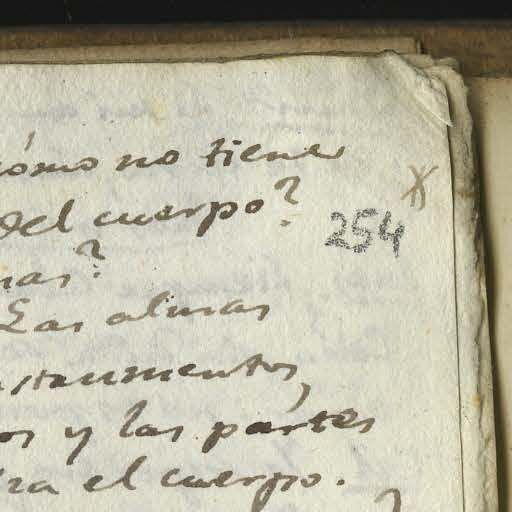 cómo no tiene
del cuerpo?
254
nas?
Las almas
nstrumentos,
os y las partes
ra el cuerpo.